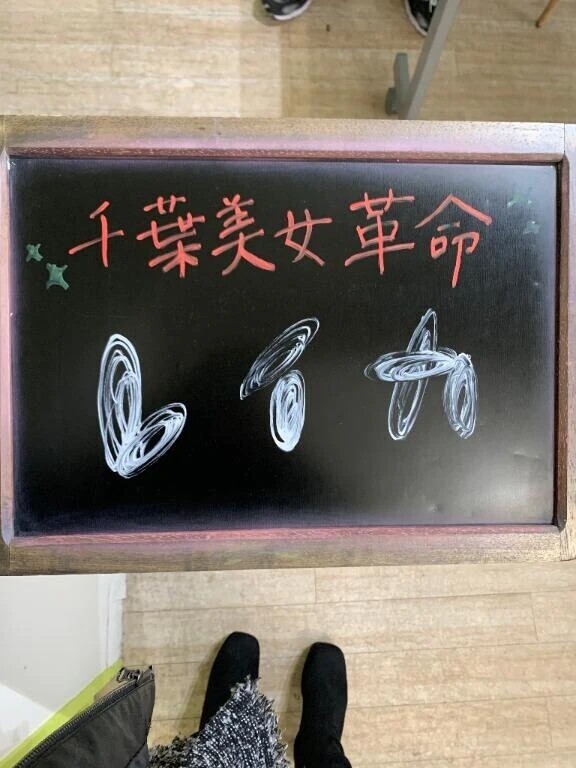 千葉美女革命
レイカ